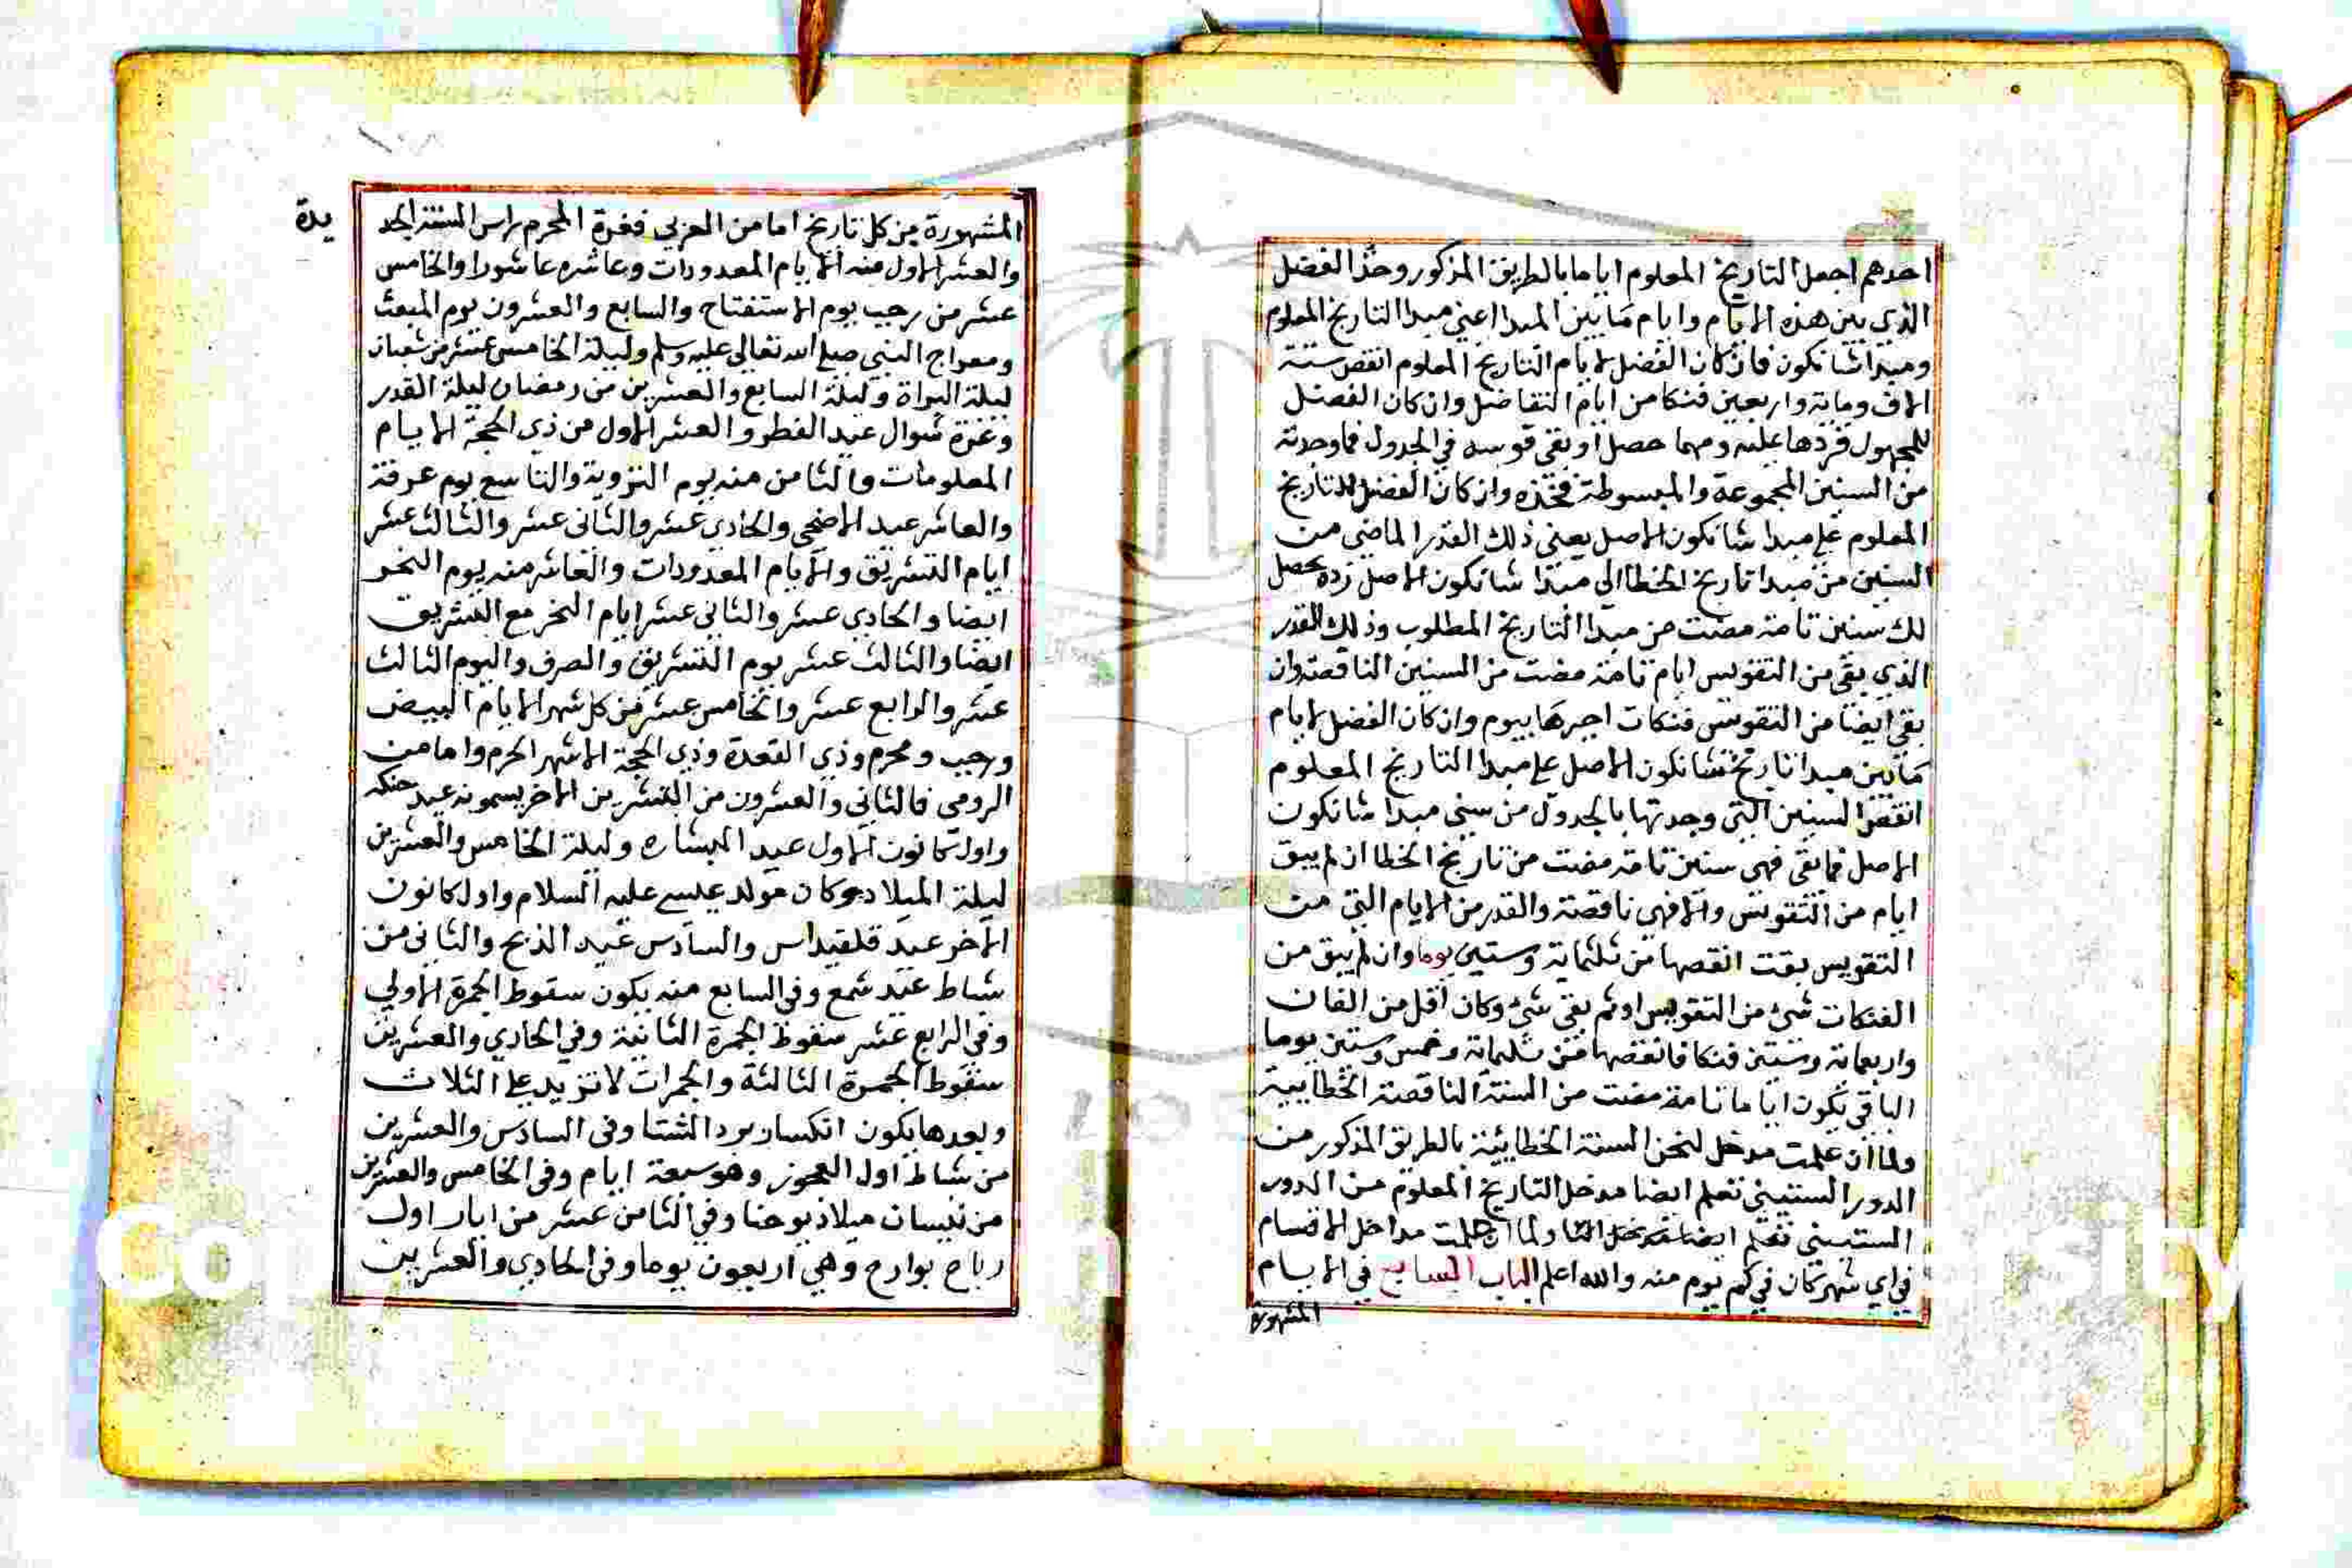 احدهم اجعل التاريخ المعلوم اياما بالطريق المذكور وخذ الفضل
الذي بين هذه الايام وايام ما بين المبدا اعني مبدا التاريخ المعلوم
ومبدا شانكون فان كان الفضل لايام التاريخ المعلوم انقص ستة
الاف ومائة واربعين فنكا من ايام التفاضل وان كان الفضل
للمجهول فزدها عليه ومهما حصل او بقي قوسه في الجدول فما وجدته
من السنين المجموعة والمبسوطة فخذه وان كان الفضل للتاريخ
المعلوم على مبدا شانكون الاصل يعني ذلك القدر الماضي من
السنين من مبدا تاريخ الخطا الى مبتدا شانكون الاصل زده يحصل
لك سنين تامة مضت من مبدا التاريخ المطلوب وذلك القدر
الذي بقي من التقويس ايام تامة مضت من السنين الناقصة وان
بقي ايضا من التقويس فنكات اجبرها بيوم وان كان الفضل لايام
ما بين مبدا تاريخ شانكون الاصل على مبدا التاريخ المعلوم
انقص السنين التي وجدتها بالجدول من سني مبدا شانكون
الاصل فما بقي فهي سنين تامة مضت من تاريخ الخطا ان لم يبق
ايام من التقويس والا فهي ناقصة والقدر من الايام التي من
التقويس بقت انقصها من ثلثماية وستين يوما وان لم يبق من
الفنكات شئ من التقويس او ثم بقي شئ وكان اقل من الفان
واربعمائة وستين فنكا فانقصها من ثلثمائة وخمس وستين يوما
الباقي يكون اياما تامة مضت من السنة الناقصة الخطاييية
ولما ان علمت مدخل لنحن السنة الخطائية بالطريق المذكور من
الدور الستيني تعلم ايضا مدخل التاريخ المعلوم من الدور
الستيني تعلم ايضا ولما ان علمت مداخل الاقسام
في اي شهر كان في كم يوم منه والله اعلم الباب السابع في الايام
المشهورة
المشهورة من كل تاريخ اما من العربي فغرة المحرم راس السنة الجد
يدة
والعشر الاول منه الايام المعدودات وعاشره عاشورا والخامس
عشر من رجب يوم الاستفتاح والسابع والعشرون يوم المبعث
ومعراج النبي صلى الله تعالى عليه وسلم وليلة الخامس عشر من شعبان
ليلة البراة وليلة السابع والعشرين من رمضان ليلة القدر
وغرة شوال عيد الفطر والعشر الاول من ذي الحجة الايام
المعلومات والثامن منه يوم التروية والتاسع يوم عرفة
والعاشر عيد الاضحى والحادي عشر والثاني عشر والثالث عشر
ايام التشريق والايام المعدودات والعاشر منه يوم النحر
ايضا والحادي عشر والثاني عشر ايام النحر مع التشريق
ايضا والثالث عشر يوم التشريق والصرف واليوم الثالث
عشر والرابع عشر والخامس عشر من كل شهر الايام البيض
ورجب ومحرم وذي القعدة وذي الحجة الاشهر الحرم واما من
الرومي فالثاني والعشرون من التشرين الاخر يسمونه عيد حنكه
واول كانون الاول عيد البشاره وليلة الخامس والعشرين
ليلة الميلاد وكان مولد عيسى عليه السلام واول كانون
الاخر عيد قلقيداس والسادس عيد الذبح والثاني من
شباط عيد شمع وفي السابع منه يكون سقوط الجمرة الاولي
وفي الرابع عشر سقوط الجمرة الثانية وفي الحادي والعشرين
سقوط الجمرة الثالثة والجمرات لا تزيد على الثلاث
وبعدها يكون انكسار برد الشتا وفي السادس والعشرين
من شباط اول العجوز وهو سبعة ايام وفي الخامس والعشرين
من نيسان ميلاد يوحنا وفي الثامن عشر من ايار اول
رياح بوارح وهي اربعون يوما وفي الحادي والعشرين